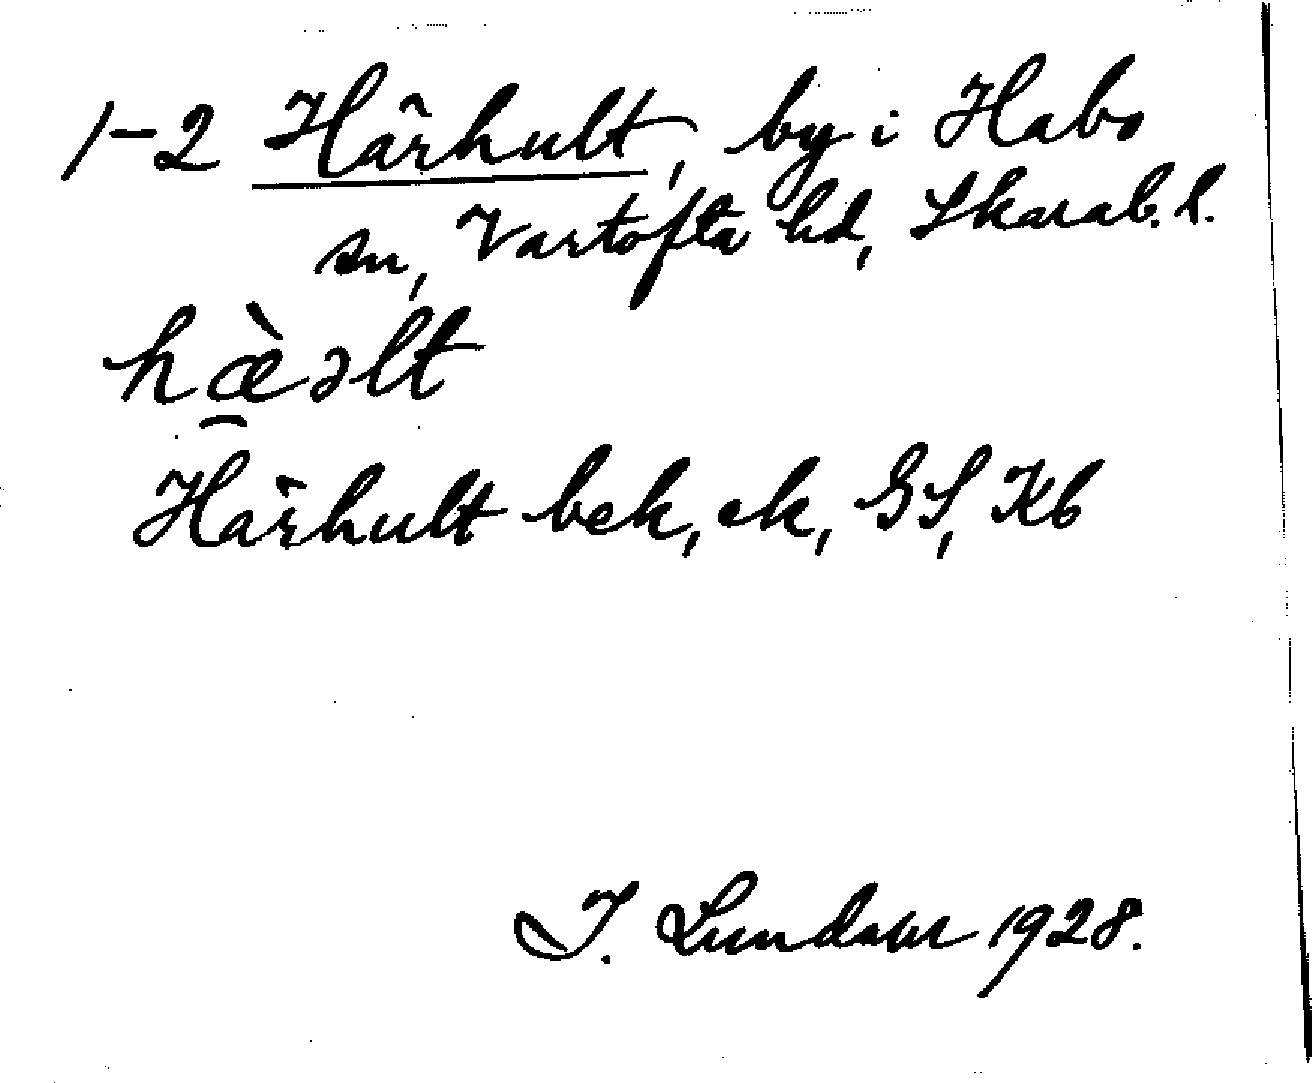 1-2 Härhult, by i Habo
sn, Vartofta hd, Skarab. l.
hæ̠̀əlt
Härhult bek, ek, GS, Kb
J. Lundahl 1928.